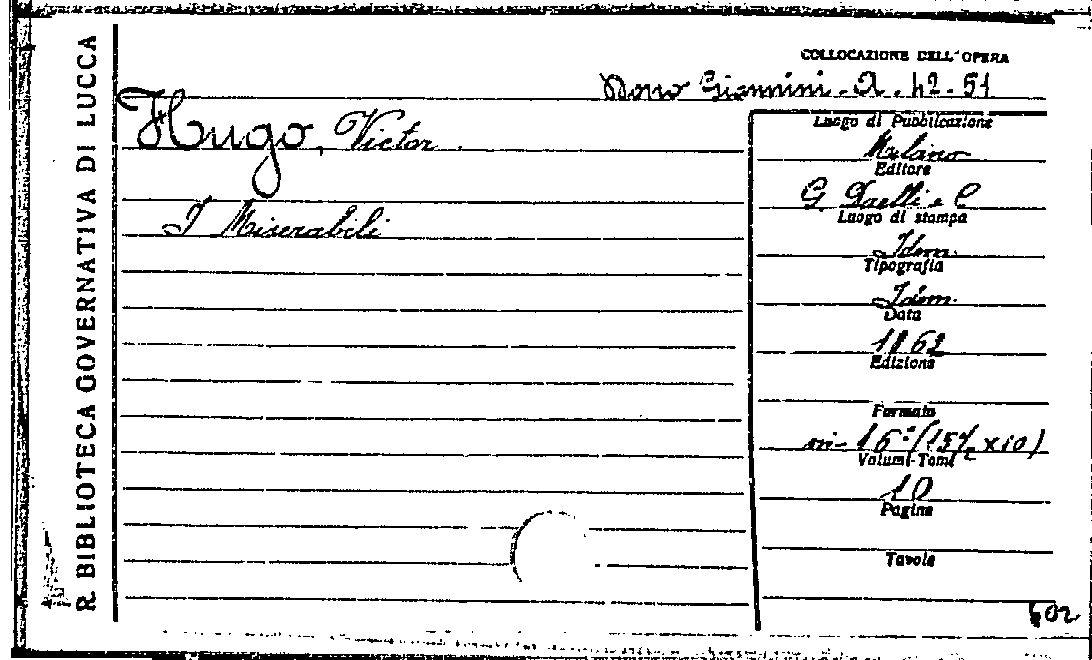 R. BIBLIOTECA GOVERNATIVA DI LUCCA
COLLOCAZIONE DELL'OPERA
Dono Giannini - A. 42. 51
Hugo, Victor.
I Miserabili
Luogo di Pubblicazione
Milano
Editore
G. Daelli e C
Luogo di stampa
Idem.
Tipografia
Idem.
Data
1862
Edizione
Formato
in-16°(15½ x10)
Volumi-Tomi
10
Pagine
Tavole
602